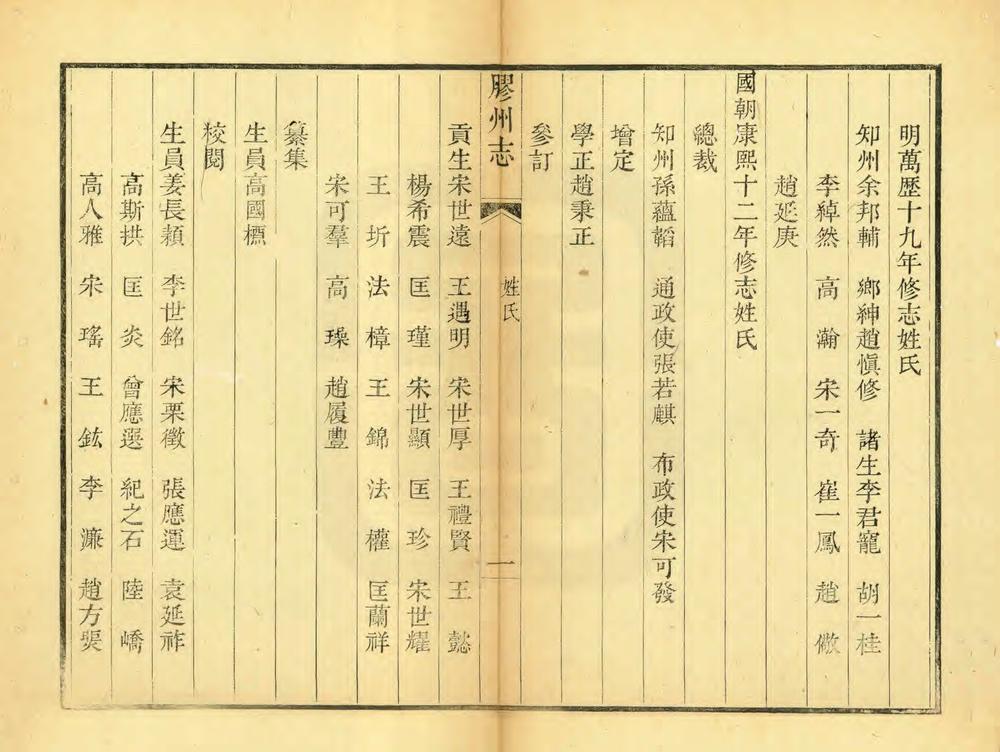 明萬歷十九年修志姓氏
知州余邦輔 鄉紳趙愼修 諸生李君寵 胡一桂
李綽然 高瀚 宋一奇 崔一鳳 趙儆
趙延庚
國朝康熙十二年修志姓氏
總裁
知州孫蘊韜 通政使張若麒 布政使宋可發
增定
學正趙秉正
參訂
膠州志 姓氏 一
貢生宋世遠 王遇明 宋世厚 王禮賢 王懿
楊希震 匡瑾 宋世顯 匡珍 宋世耀
王圻 法樟 王錦 法權 匡蘭祥
宋可羣 高璪 趙履豐
纂集
生員高國標
校閱
生員姜長頴 李世銘 宋栗徵 張應運 袁延祚
高斯拱 匡炎 曾應選 紀之石 陸嶠
高人雅 宋瑤 王鈜 李濂 趙方